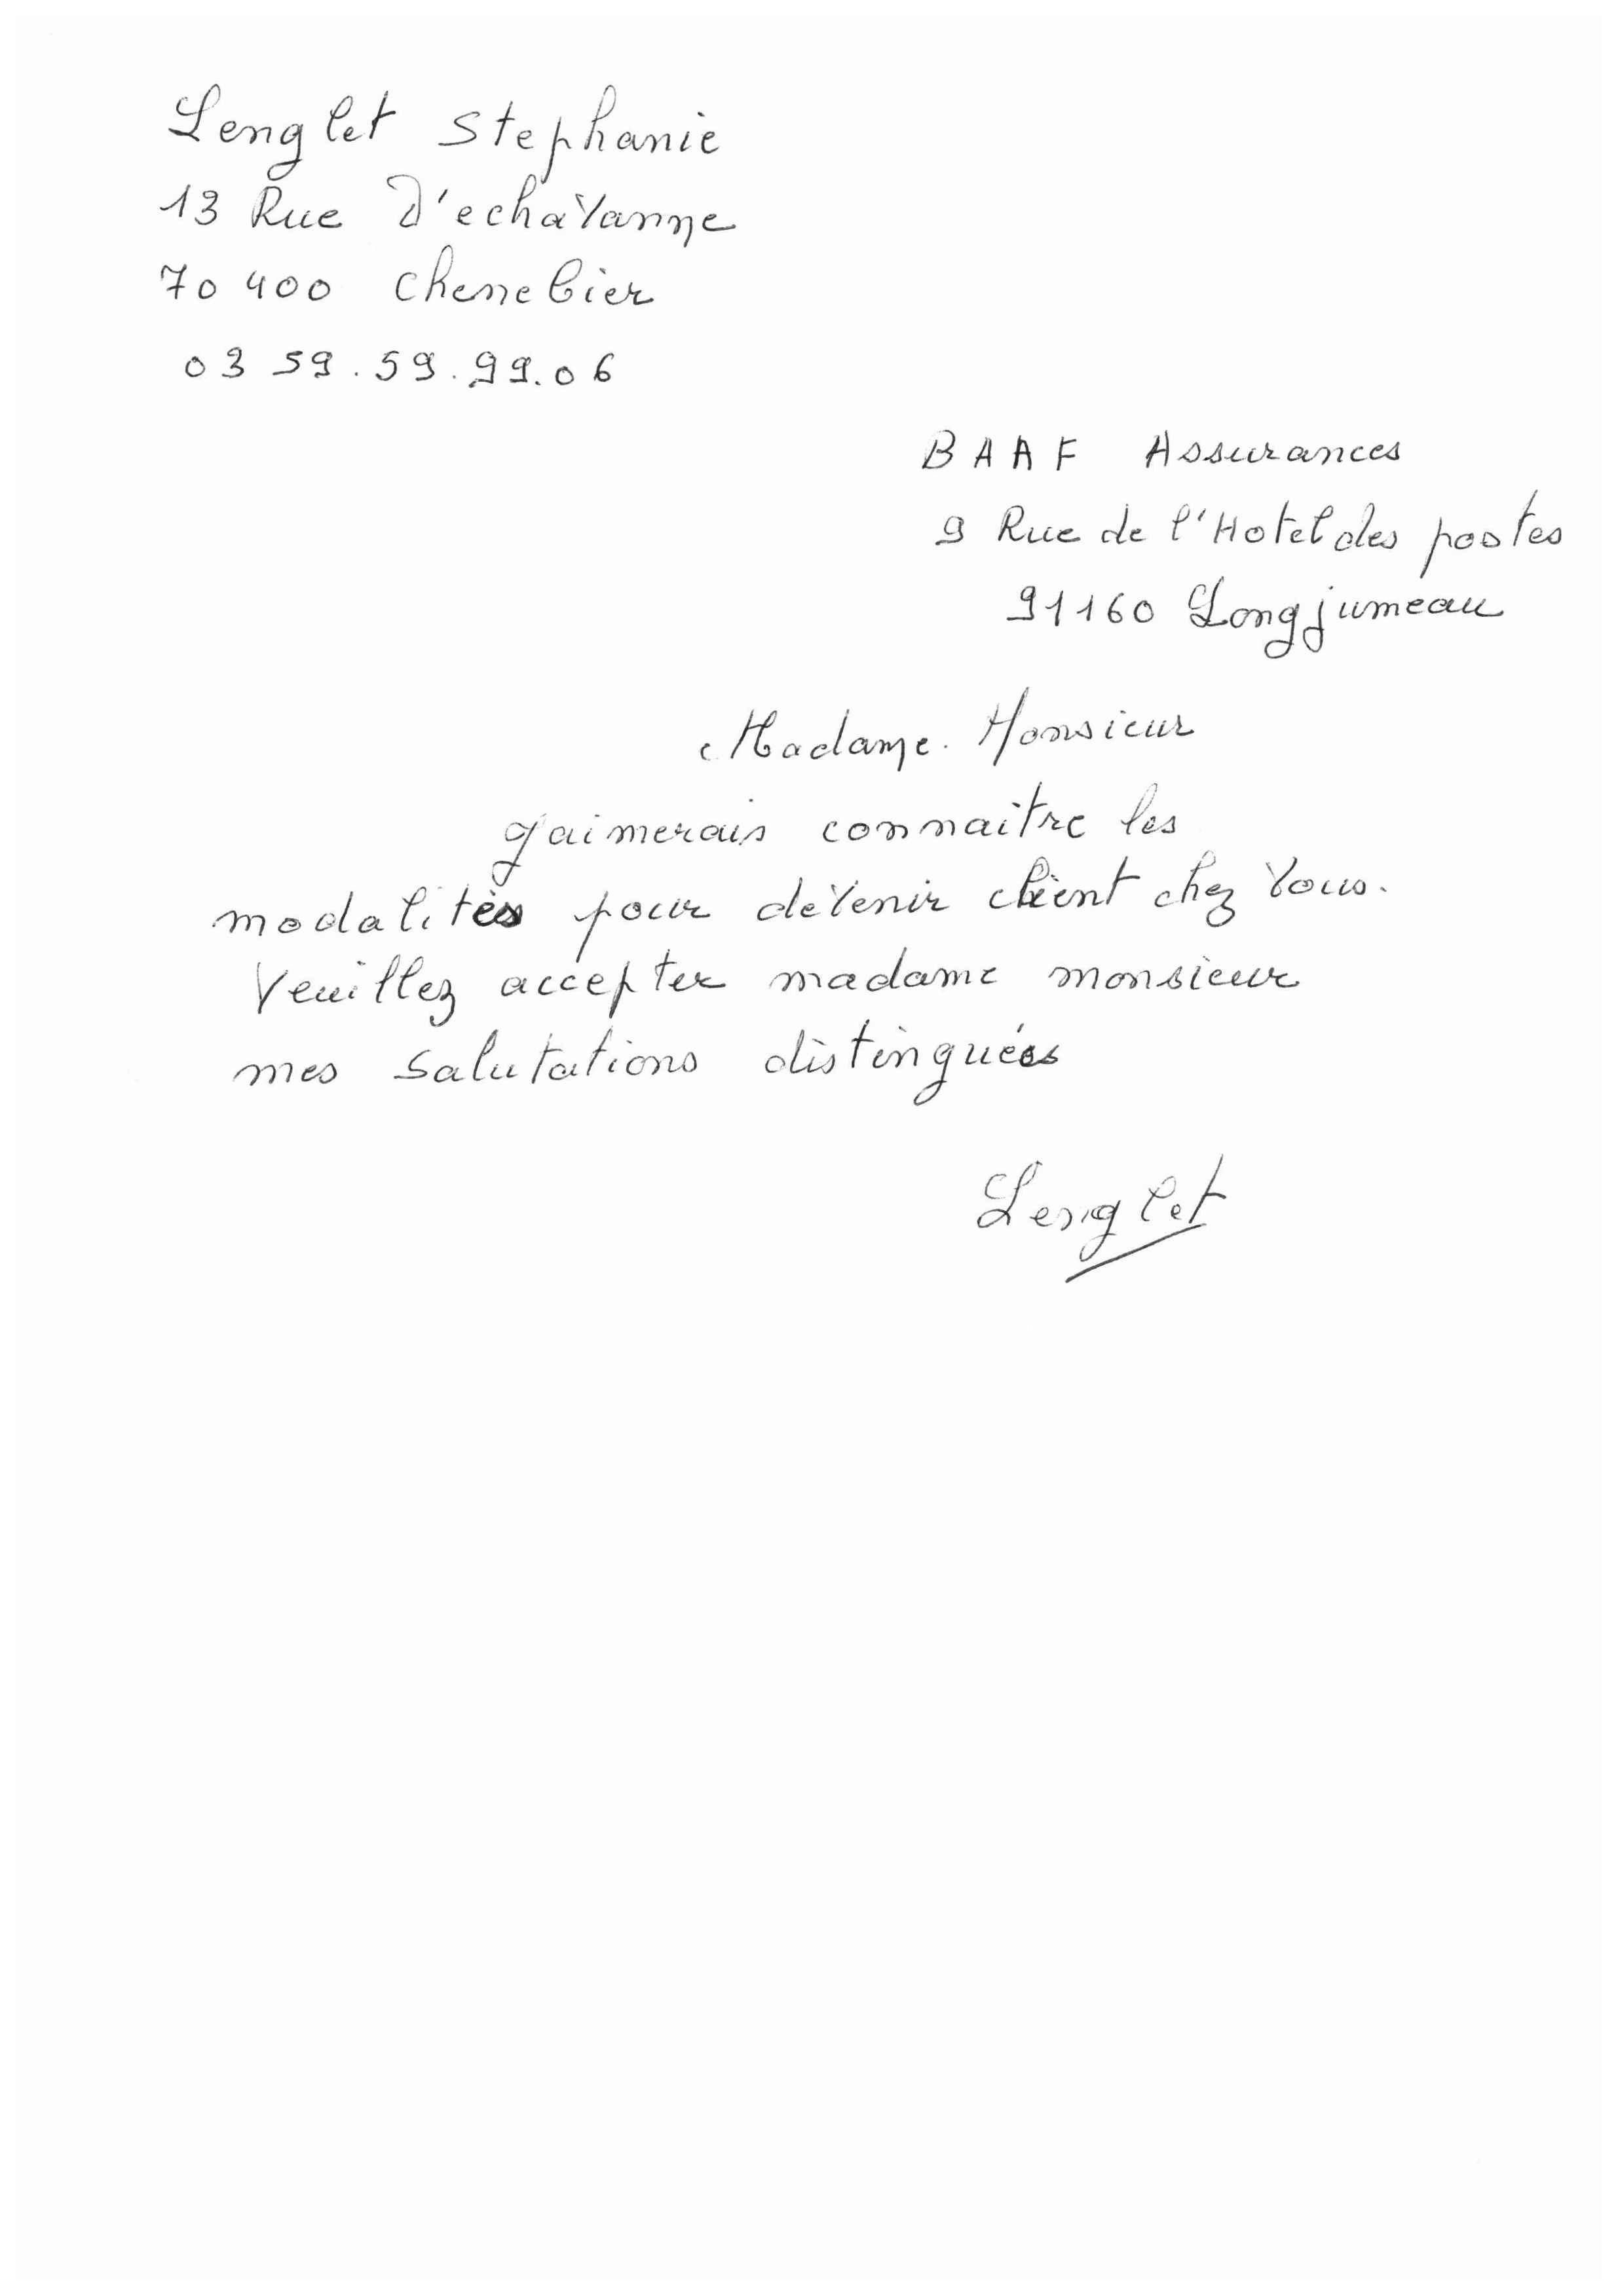 Lenglet Stephanie
13 Rue D'echavanne
70 400 chenebier
03 59.59.99.06
BAAF Assurances
9 Rue de l'Hotel des postes
91160 Longjumeau
Madame. Monsieur
J'aimerais connaitre les
modalités pour devenir client chez vous.
Veuillez accepter madame monsieur
mes salutations distinguées
Lenglet